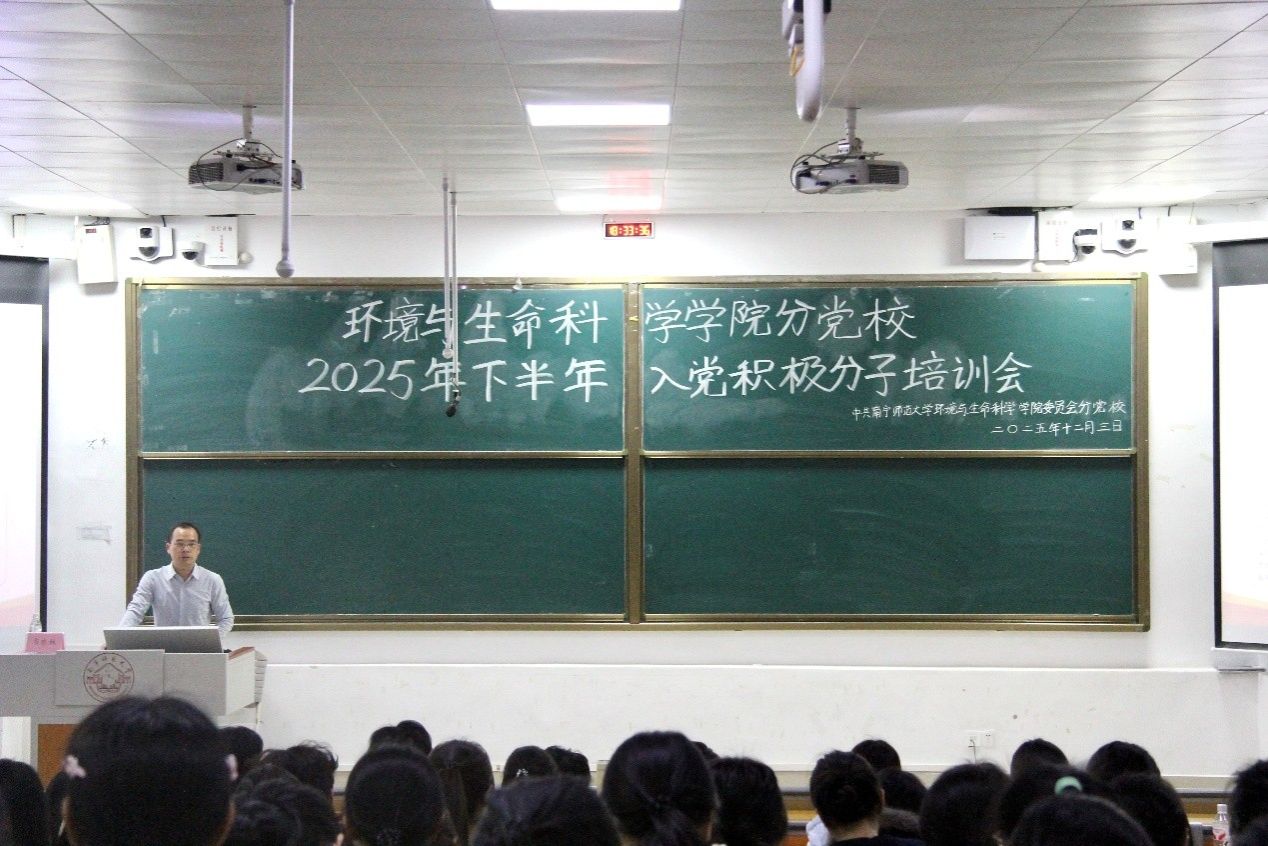 18:33:36
环境与生命科学学院分党校
2025年下半年入党积极分子培训会
中共南宁师范大学环境与生命科学学院委员会分党校
二〇二五年十二月三日